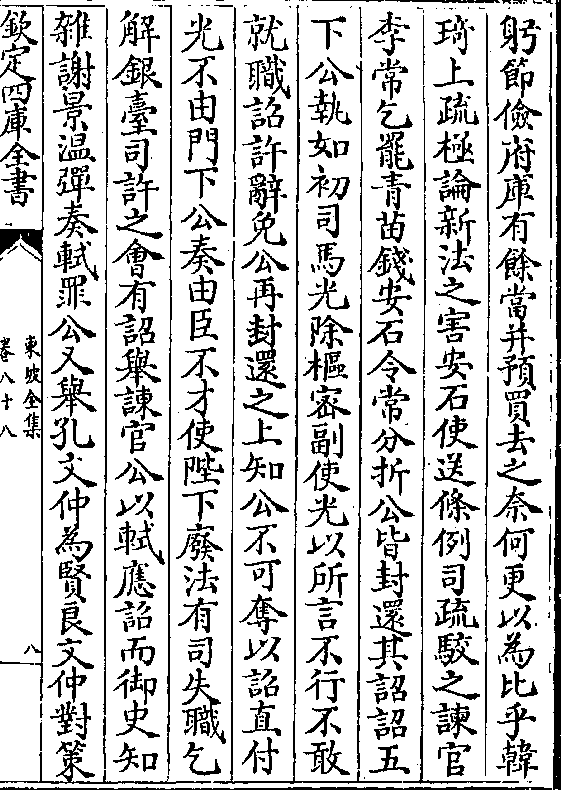 躬節儉府庫有餘當并預買去之奈何更以為比乎韓
琦上疏極論新法之害安石使送條例司疏駮之諫官
李常乞罷青苗錢安石令常分折公皆封還其詔詔五
下公執如初司馬光除樞密副使光以所言不行不敢
就職詔許辭免公再封還之上知公不可奪以詔直付
光不由門下公奏由臣不才使陛下廢法有司失職乞
解銀臺司許之會有詔舉諫官公以軾應詔而御史知
雜謝景温彈奏軾罪公又舉孔文仲為賢良文仲對策
欽定四庫全書
東坡全集
卷八十八
八